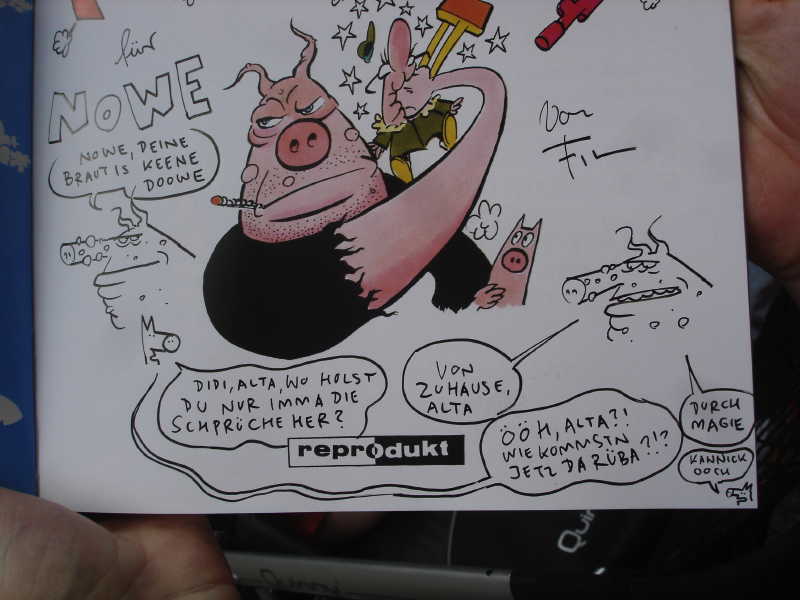 für
NOWE
NOWE, DEINE
BRAUT IS KEENE
DOOWE
Von
FIL
DIDI, ALTA, WO HOLST
DU NUR IMMA DIE
SCHPRÜCHE HER?
VON
ZUHAUSE,
ALTA
ÖÖH, ALTA?!
WIE KOMMSTN
JETZ DA RÜBA?!?
DURCH
MAGIE
KANNICK
OOCH
reprodukt